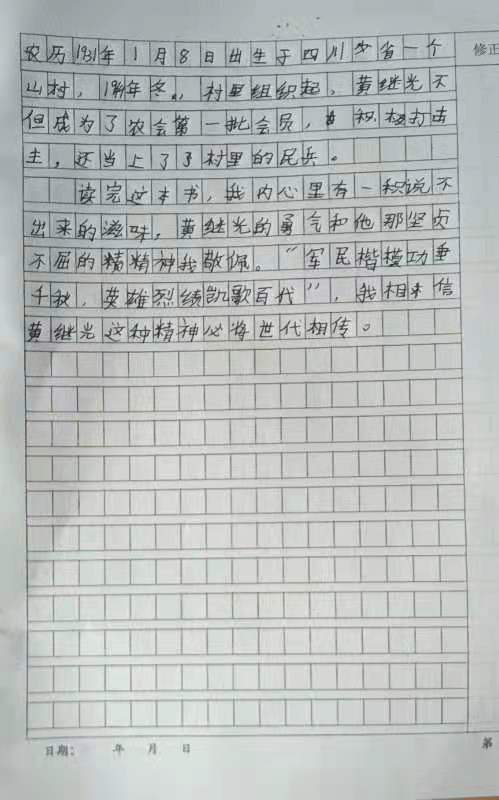 农历1931年1月8日出生于四川省一个
山村，1949年冬，村里组织起，黄继光不
但成为了农会第一批会员，积极打击
主，还当上了了村里的民兵。
读完这本书，我内心里有一种说不
出来的滋味，黄继光的勇气和他那坚贞
不屈的精精神我敬佩。“军民楷模功垂
千秋，英雄烈绩凯歌百代”，我相信
黄继光这种精神必将世代相传。
修正
日期： 年 月 日
第